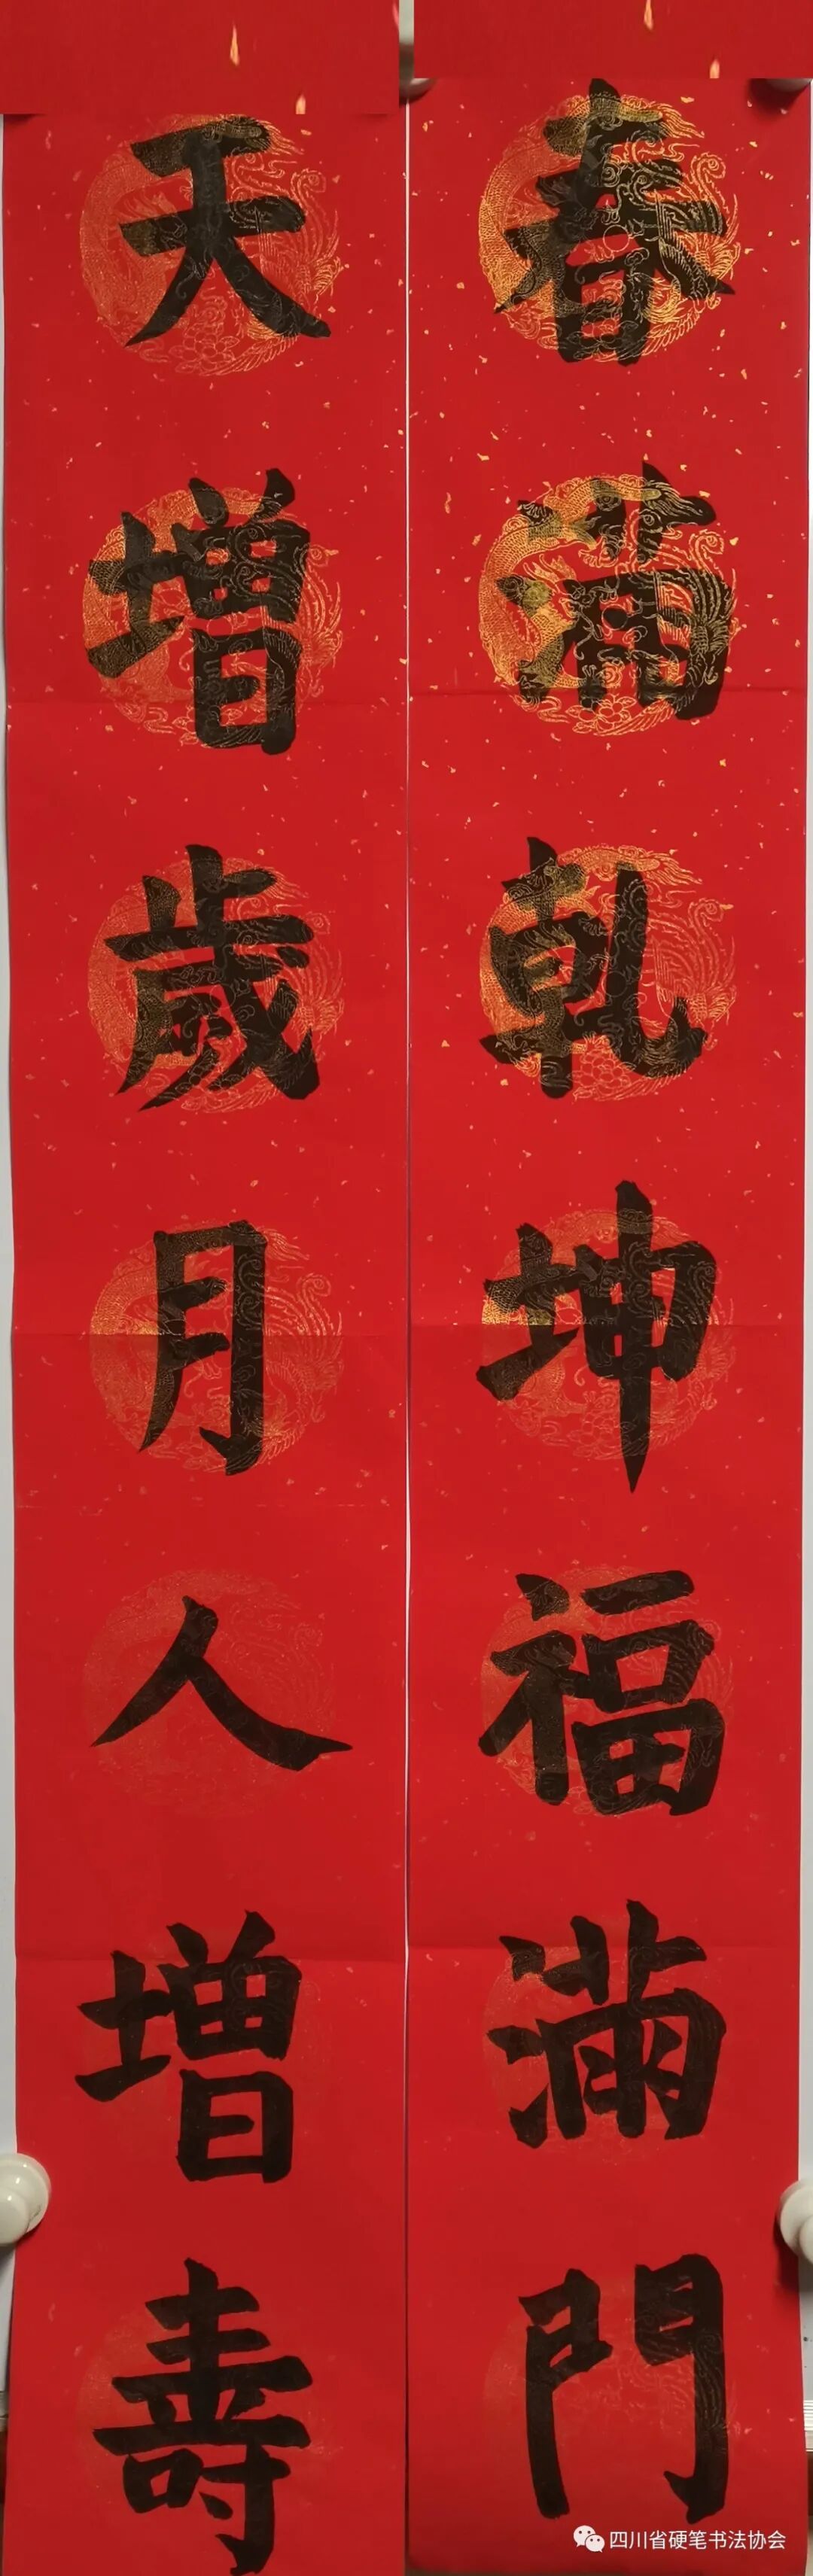 春滿乾坤福滿門
天增歲月人增壽
四川省硬笔书法协会